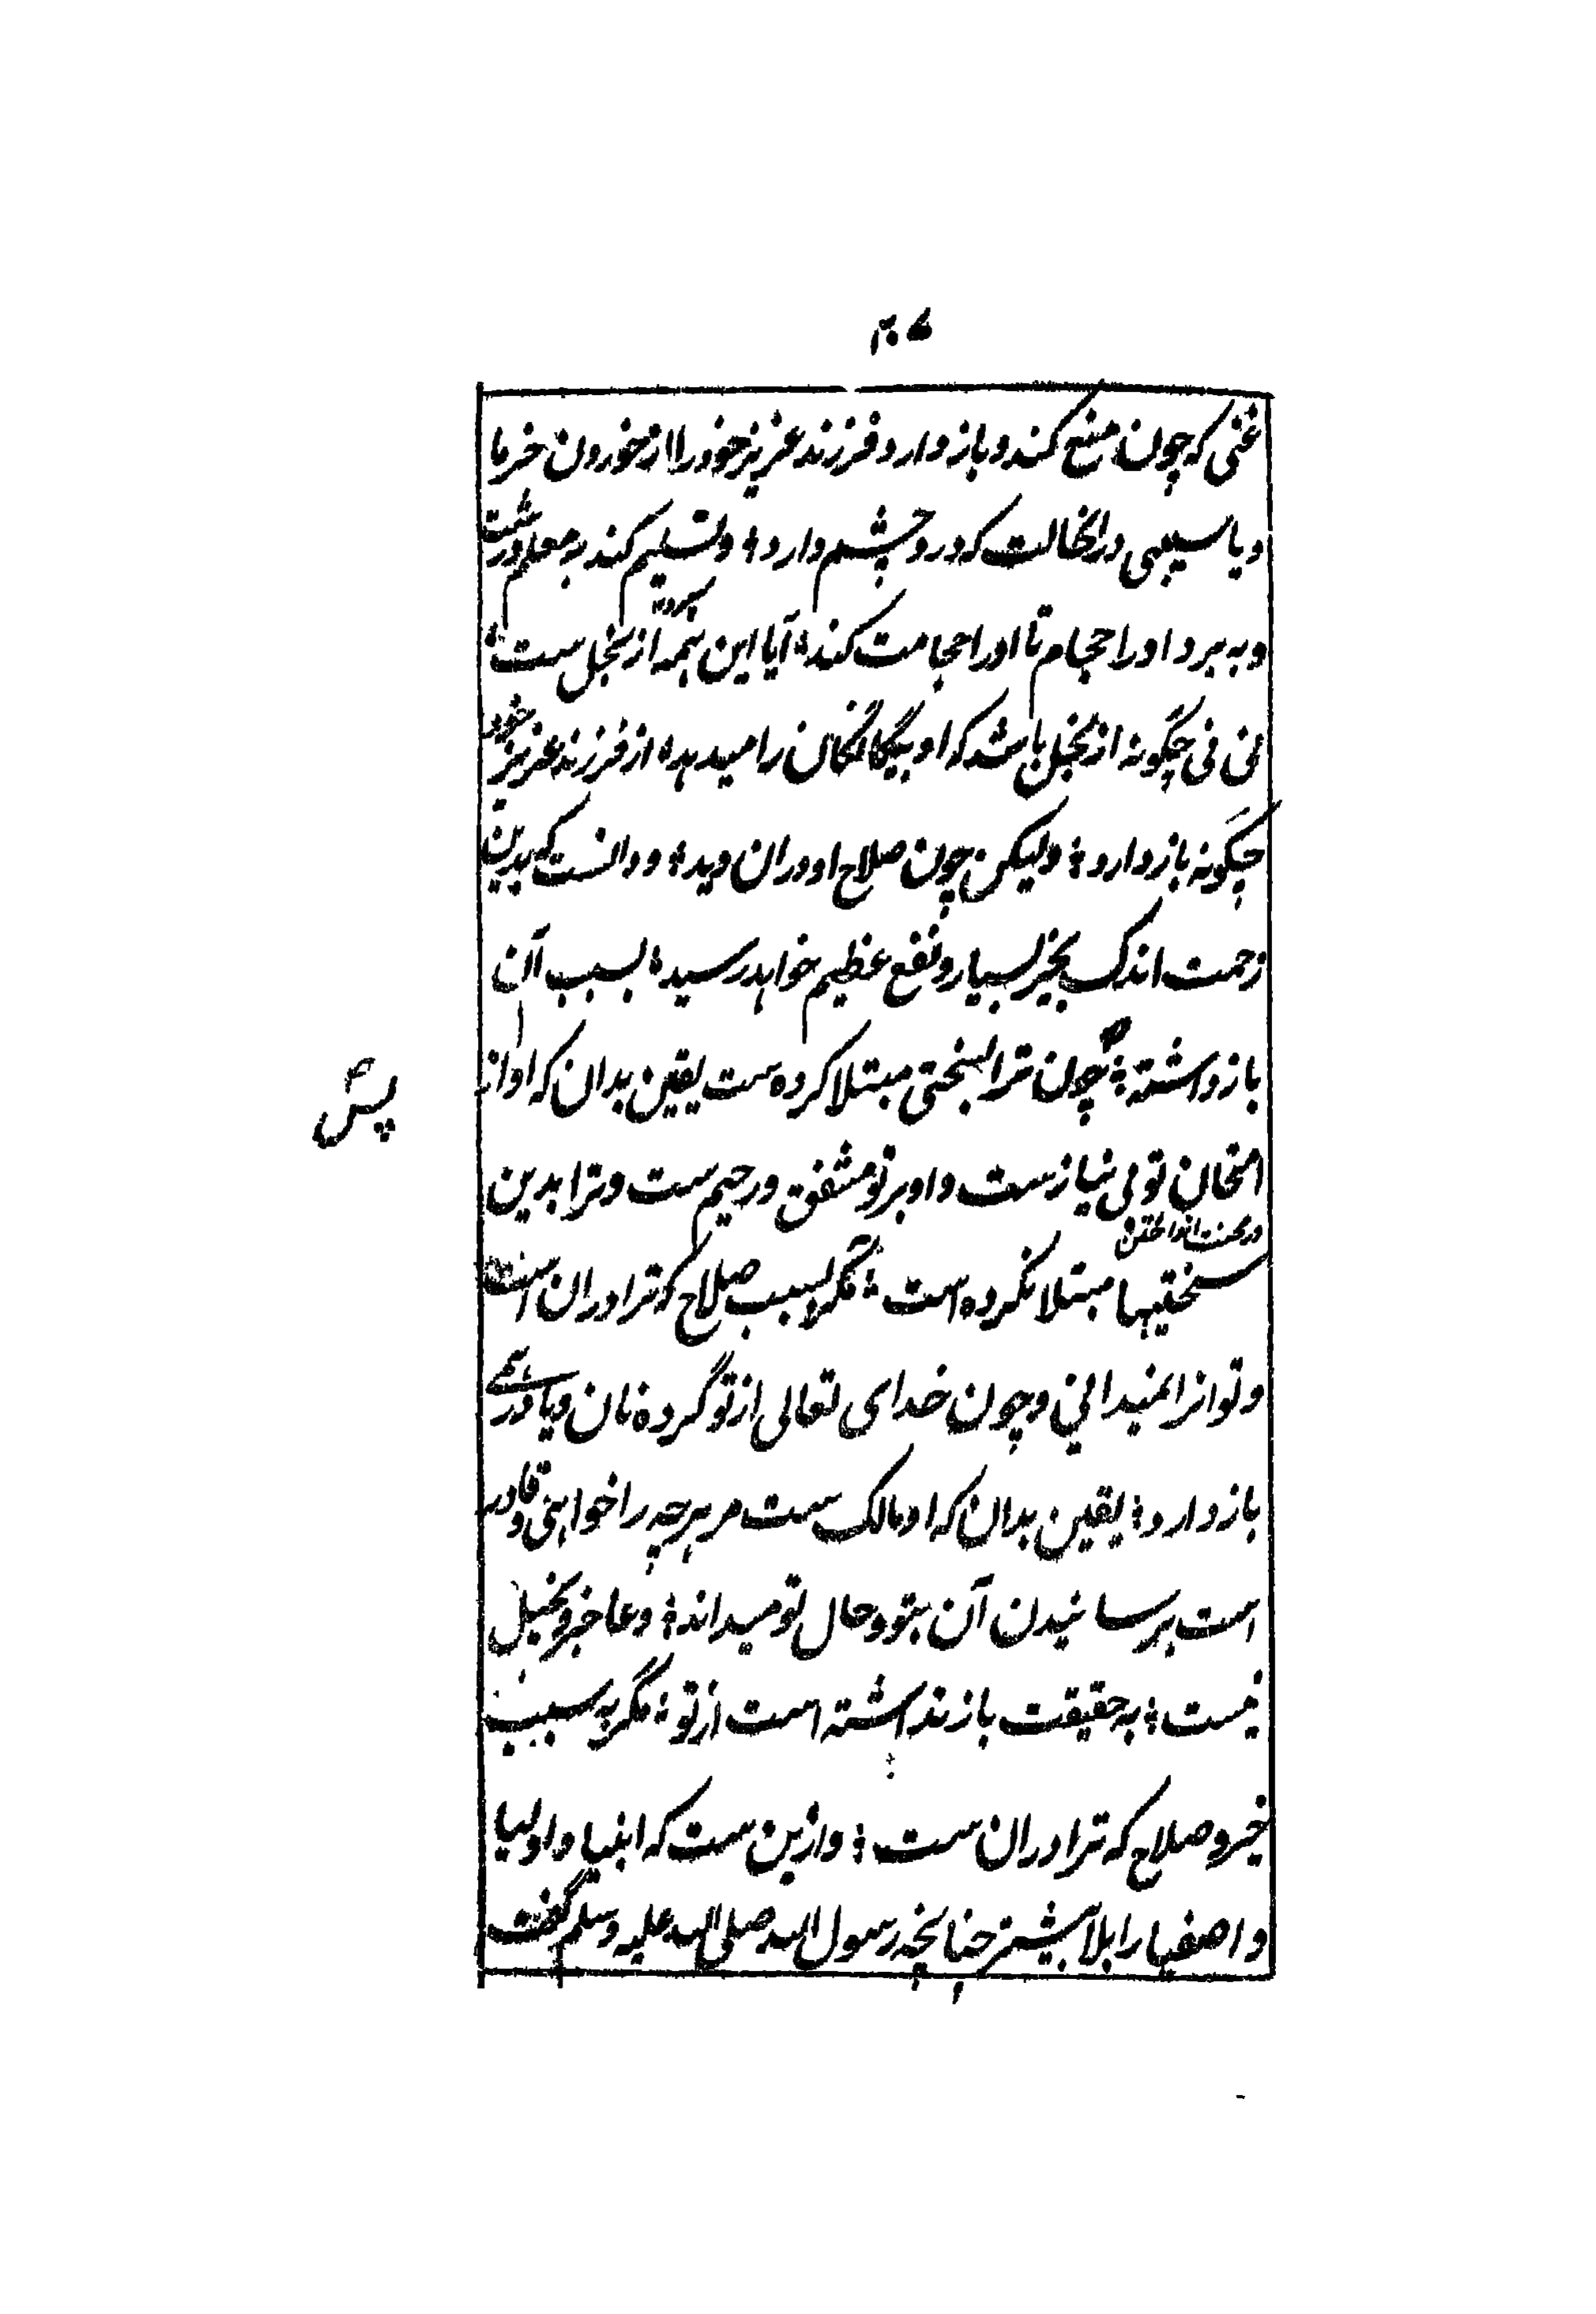 ۳۰۷
غنی که چون منع کند و باز دارد فرزند عزیز خود را از خوردن خرما
و یا سیبی درانحالت که درد چشم دارد؛ و تسلیم کند به معلم درشت
و به برد او را حجام تا اورا حجامت کند؛ آیا این همه از بخل ست؛
نی نی چگونه از بخل باشد که او بیگانگان را میدهد؛ از فرزند عزیز خود
چگونه باز دارد؛ ولیکن چون صلاح او دران دید؛ و دانست که بدین
زحمت اندک بخیر بسیار و نفع عظیم خواهد رسید؛ بسبب آن
باز داشته؛ چون ترا بسختی مبتلا کرده ست یقین بدان که او از
پس
امتحان تو بی نیاز ست و او بر تو مشفق و رحیم ست و ترا بدین
در محنت انداختن
سختیها مبتلا نکرده است؛ مگر بسبب صلاح که ترا دران است
و تو انرا نمیدانی و چون خدای تعالی از تو گرده نان و یا درمی
باز دارد؛ یقین بدان که او مالک ست مر هرچه را خواهی و قادر
است بر رسانیدن آن بتو و حال تو میداند؛ و عاجز و بخیل
نیست؛ به حقیقت باز نداشته است از تو؛ مگر به سبب
خیر و صلاح که ترا دران ست؛ و ازین ست که انبیا و اولیا
و اصفیا را بلا بیشتر چنانچه رسول الله صلی الله علیه وسلم گفت